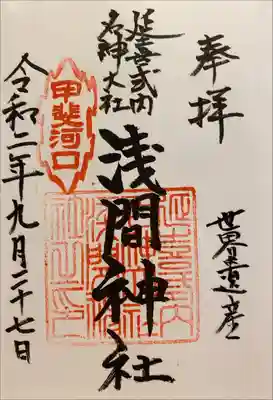 奉拝
世界遺産
延喜式内
名神大社
浅間神社
甲斐河口
令和二年九月二十七日